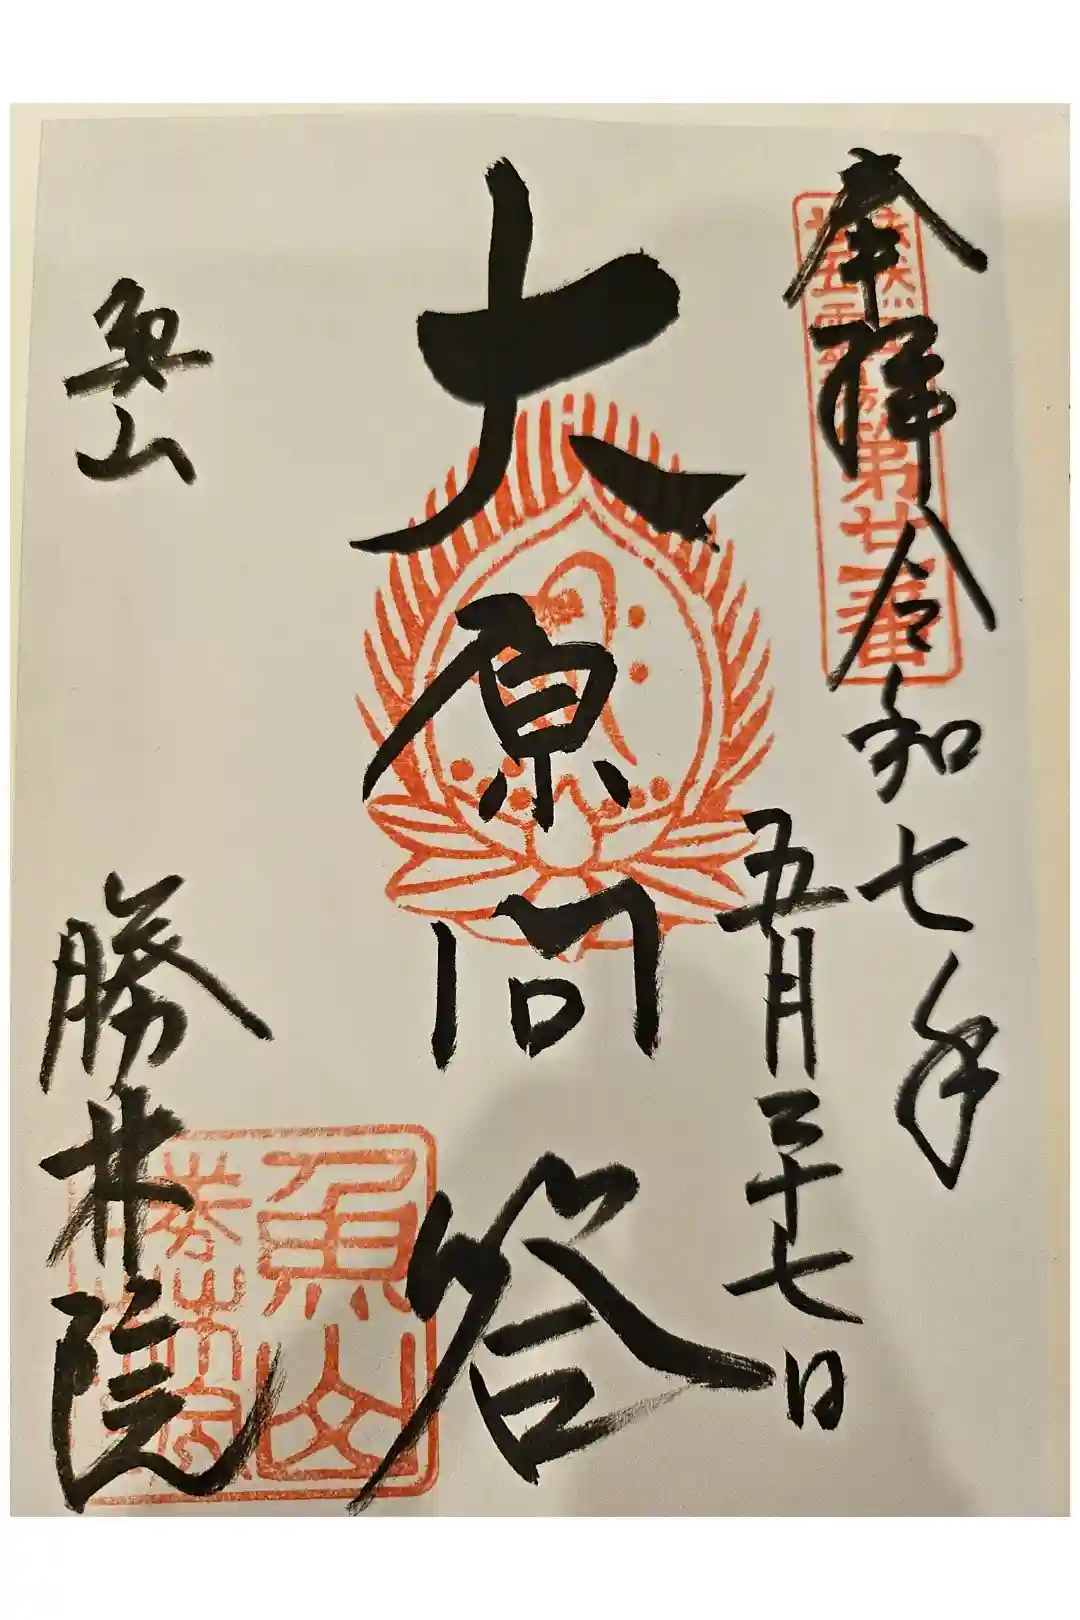 奉拝 令和七年
五月二十七日
第廿一番
大原問答
魚山
勝林院
魚山